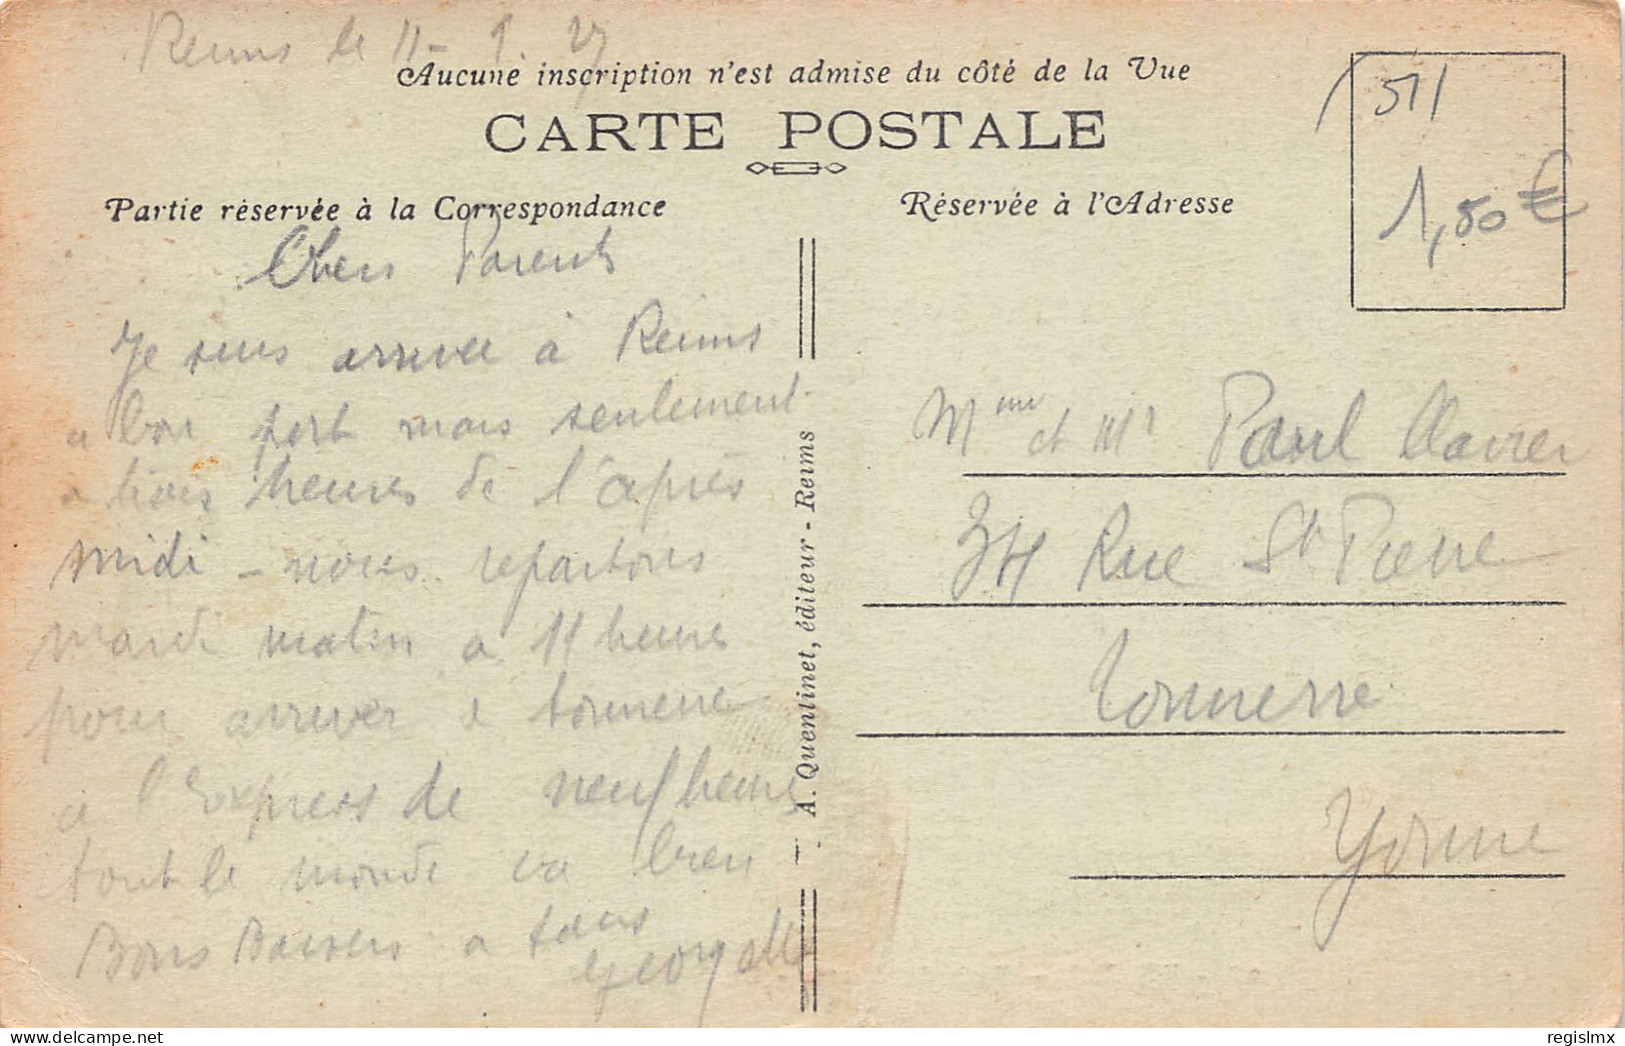 Reims le 11 - 9. 27
Aucune inscription n'est admise du côté de la Vue
CARTE POSTALE
Partie réservée à la Correspondance
Chers Parents
Je suis arrivée à Reims
a bon port mais seulement
a trois heures de l'après
midi - nous repartons
mardi matin a 11 heures
pour arriver a tonnerre
a l'Express de neuf heures
tout le monde va bien
Bons Baisers a tous
A. Quentinet, éditeur - Reims
Réservée à l'Adresse
51
1,80 €
Mme et Mr Paul
34 Rue St Pierre
Tonnerre
Yonne
regislmx